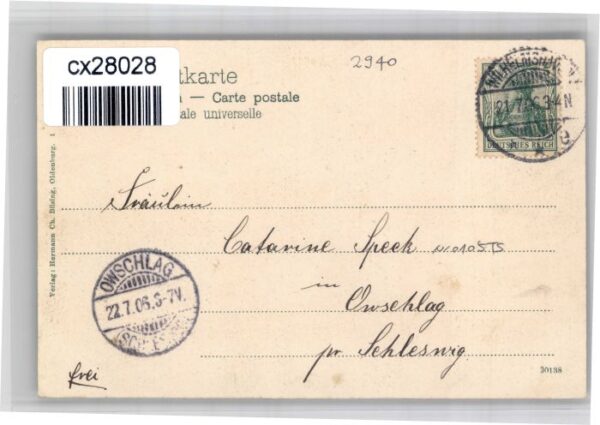 cx28028
2940
tkarte
— Carte postale
ale universelle
DEUTSCHES REICH
Verlag: Hermann Ch. Büsing, Oldenburg. 1
Fräulein
Catarine Speck
in
Owschlag
pr Schleswig
OWSCHLAG
22.7.06.6-7V.
frei
30138